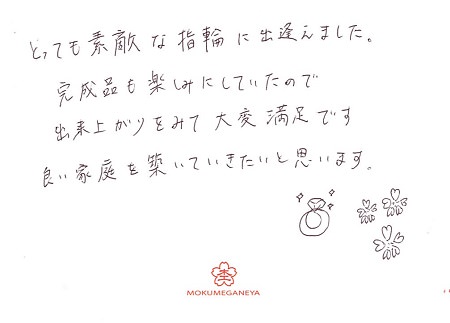 とっても素敵な指輪に出逢えました。
完成品も楽しみにしていたので
出来上がりをみて大変満足です
良い家庭を築いていきたいと思います。
MOKUMEGANEYA